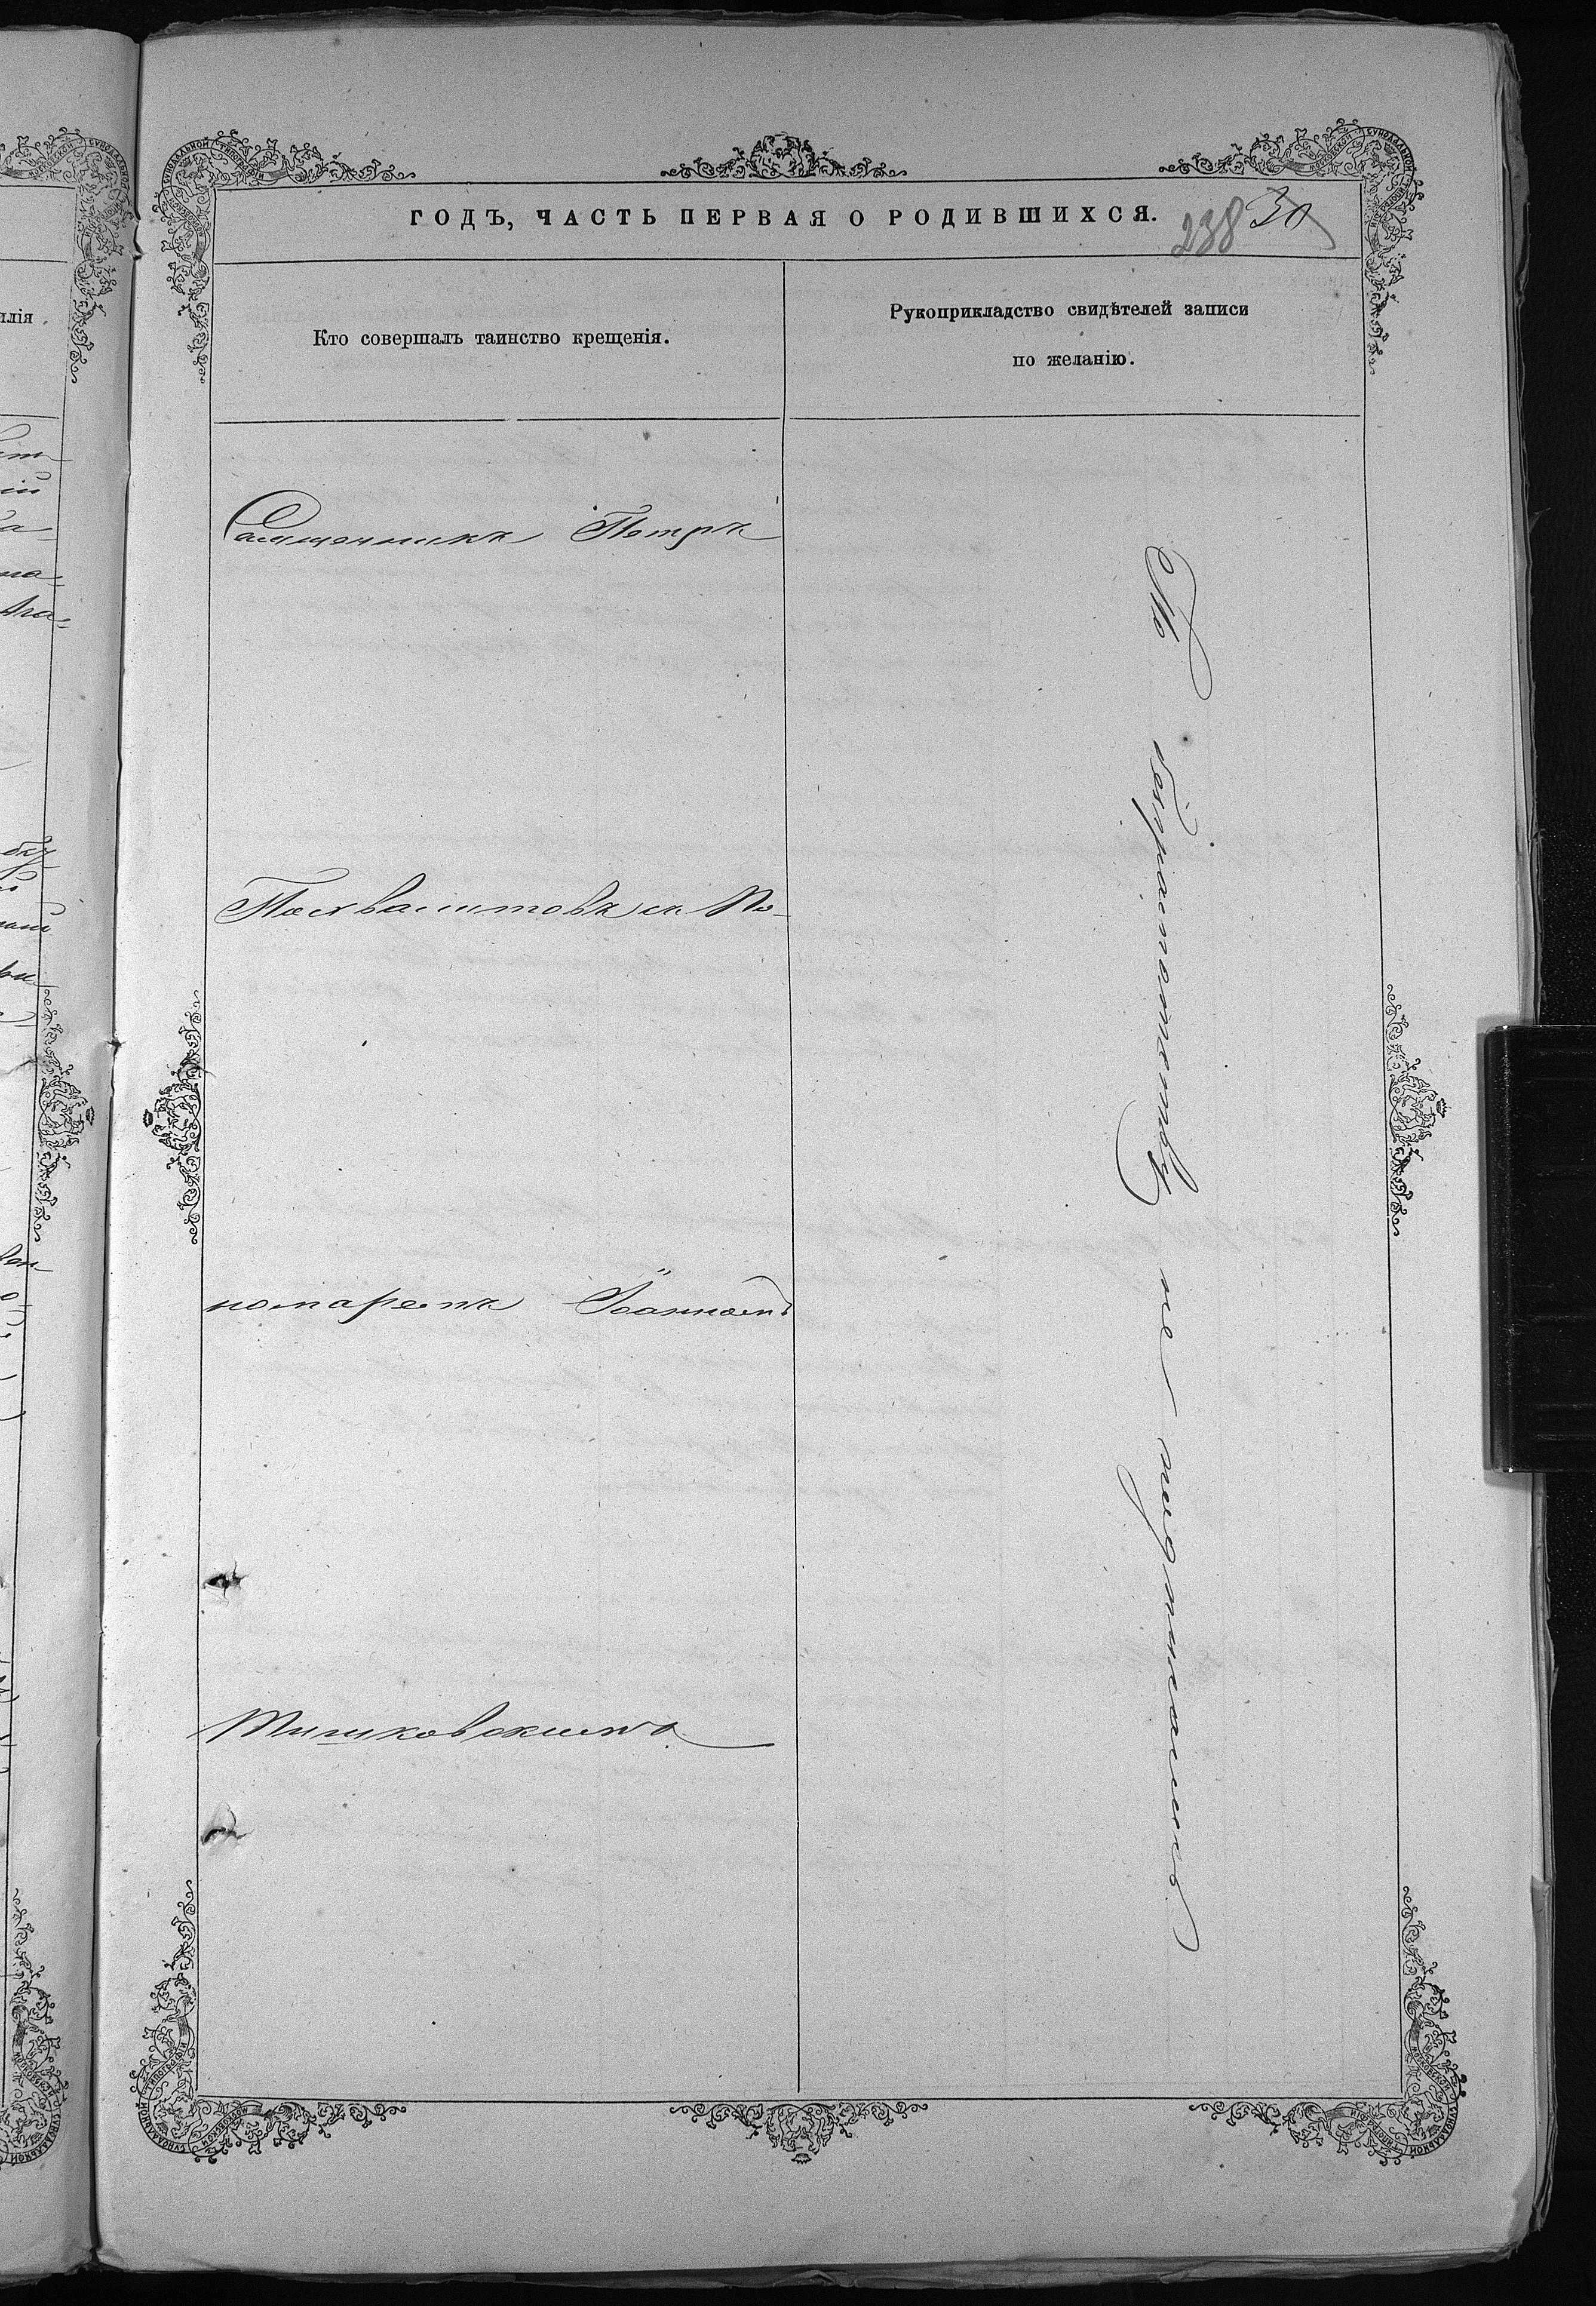 ГОДЪ, ЧАСТЬ ПЕРВАЯ О РОДИВШИХСЯ.
238 30
Кто совершалъ таинство крещенія.
Рукоприкладство свидѣтелей записи
по желанію.
Священникъ Петръ
съ По-
номаремъ Іоанномъ
Тишковскимъ.
По безграмотству не подписались